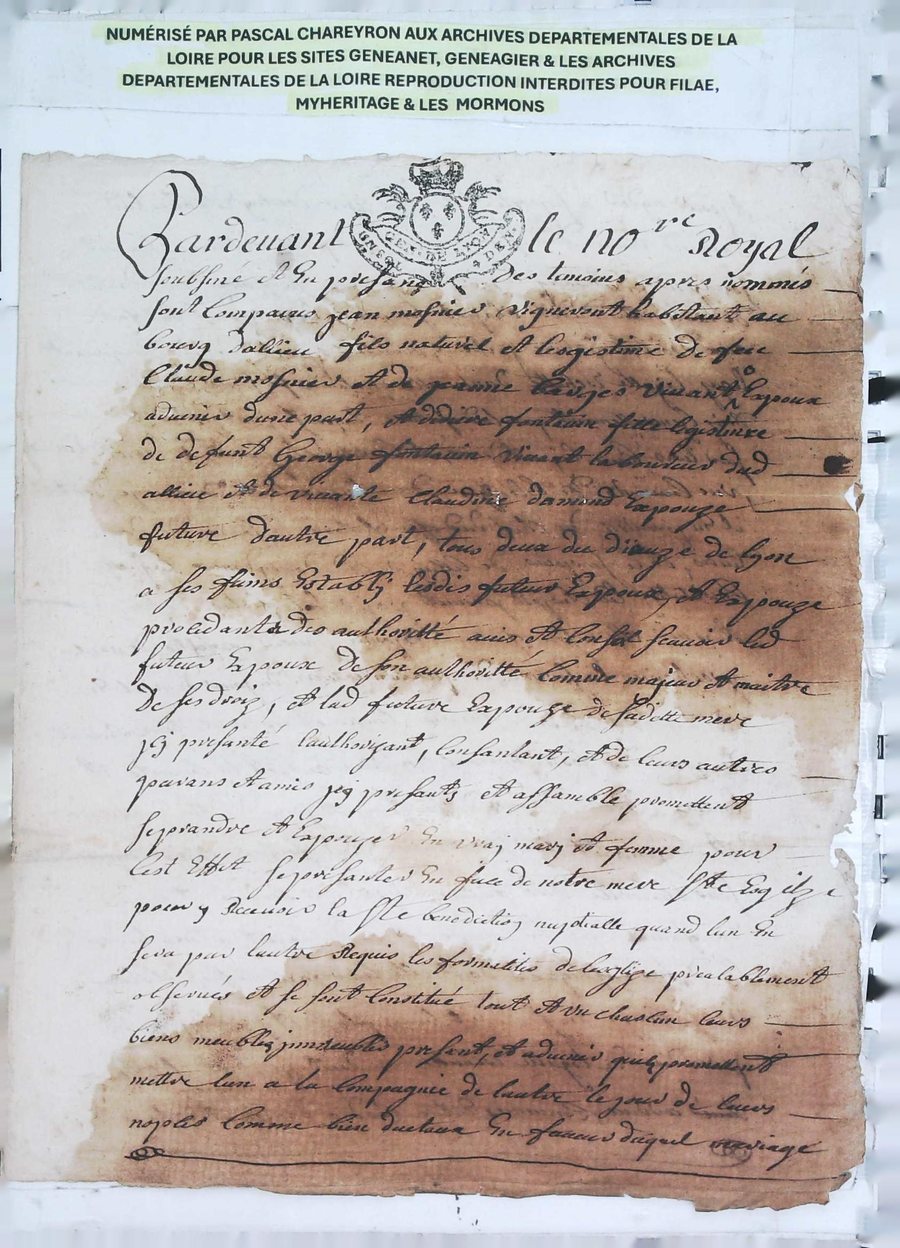 NUMÉRISÉ PAR PASCAL CHAREYRON AUX ARCHIVES DEPARTEMENTALES DE LA
LOIRE POUR LES SITES GENEANET, GENEAGIER & LES ARCHIVES
DEPARTEMENTALES DE LA LOIRE REPRODUCTION INTERDITES POUR FILAE,
MYHERITAGE & LES MORMONS
GEN. DE LYON
Pardevant le no.re Royal
soubsiné et En presance des temoins apres nommés
sont Comparus jean mosnier vigneront habitant au
bourg dallieu fils naturel et lesgistime de feu
Claude mosnier et de jeanne barges vivant Expoux
advenir dune part, et fontaim fille legistime
de defunt George fontaim vivant laboureur dud
allieu et de vivante Claudine damond Expouze
future dautre part, tous deux du diouze de lyon
a ses fains Establij lesdis futeur Expoux, et Expouze
procedants des authoritté avis et Consat scavoir led
futeur Expoux de son authoritté comme majeur et maitre
de ses droiz, et lad future Expouze de sadette mere
jcij presanté lauthorizant, Consantant, et de leurs autres
parans et amis jcy presants et assamble promettent
se prandre et Expouzer En vraj marj et femme pour
Cest Effet se presanter En face de notre mere Ste Esglize
pour y Recevoir la Ste benediction nuptialle quand lun En
sera par lautre Requis les formalités de lesglize prealablement
observués et se sont Constitué tout et un chaslun leurs
biens meubles jmmeubles presant, et advenir quils promettent
mettre lun a la Compagnie de lautre le jour de leurs
nopses Comme bien doctaux En faveur duquel mariage